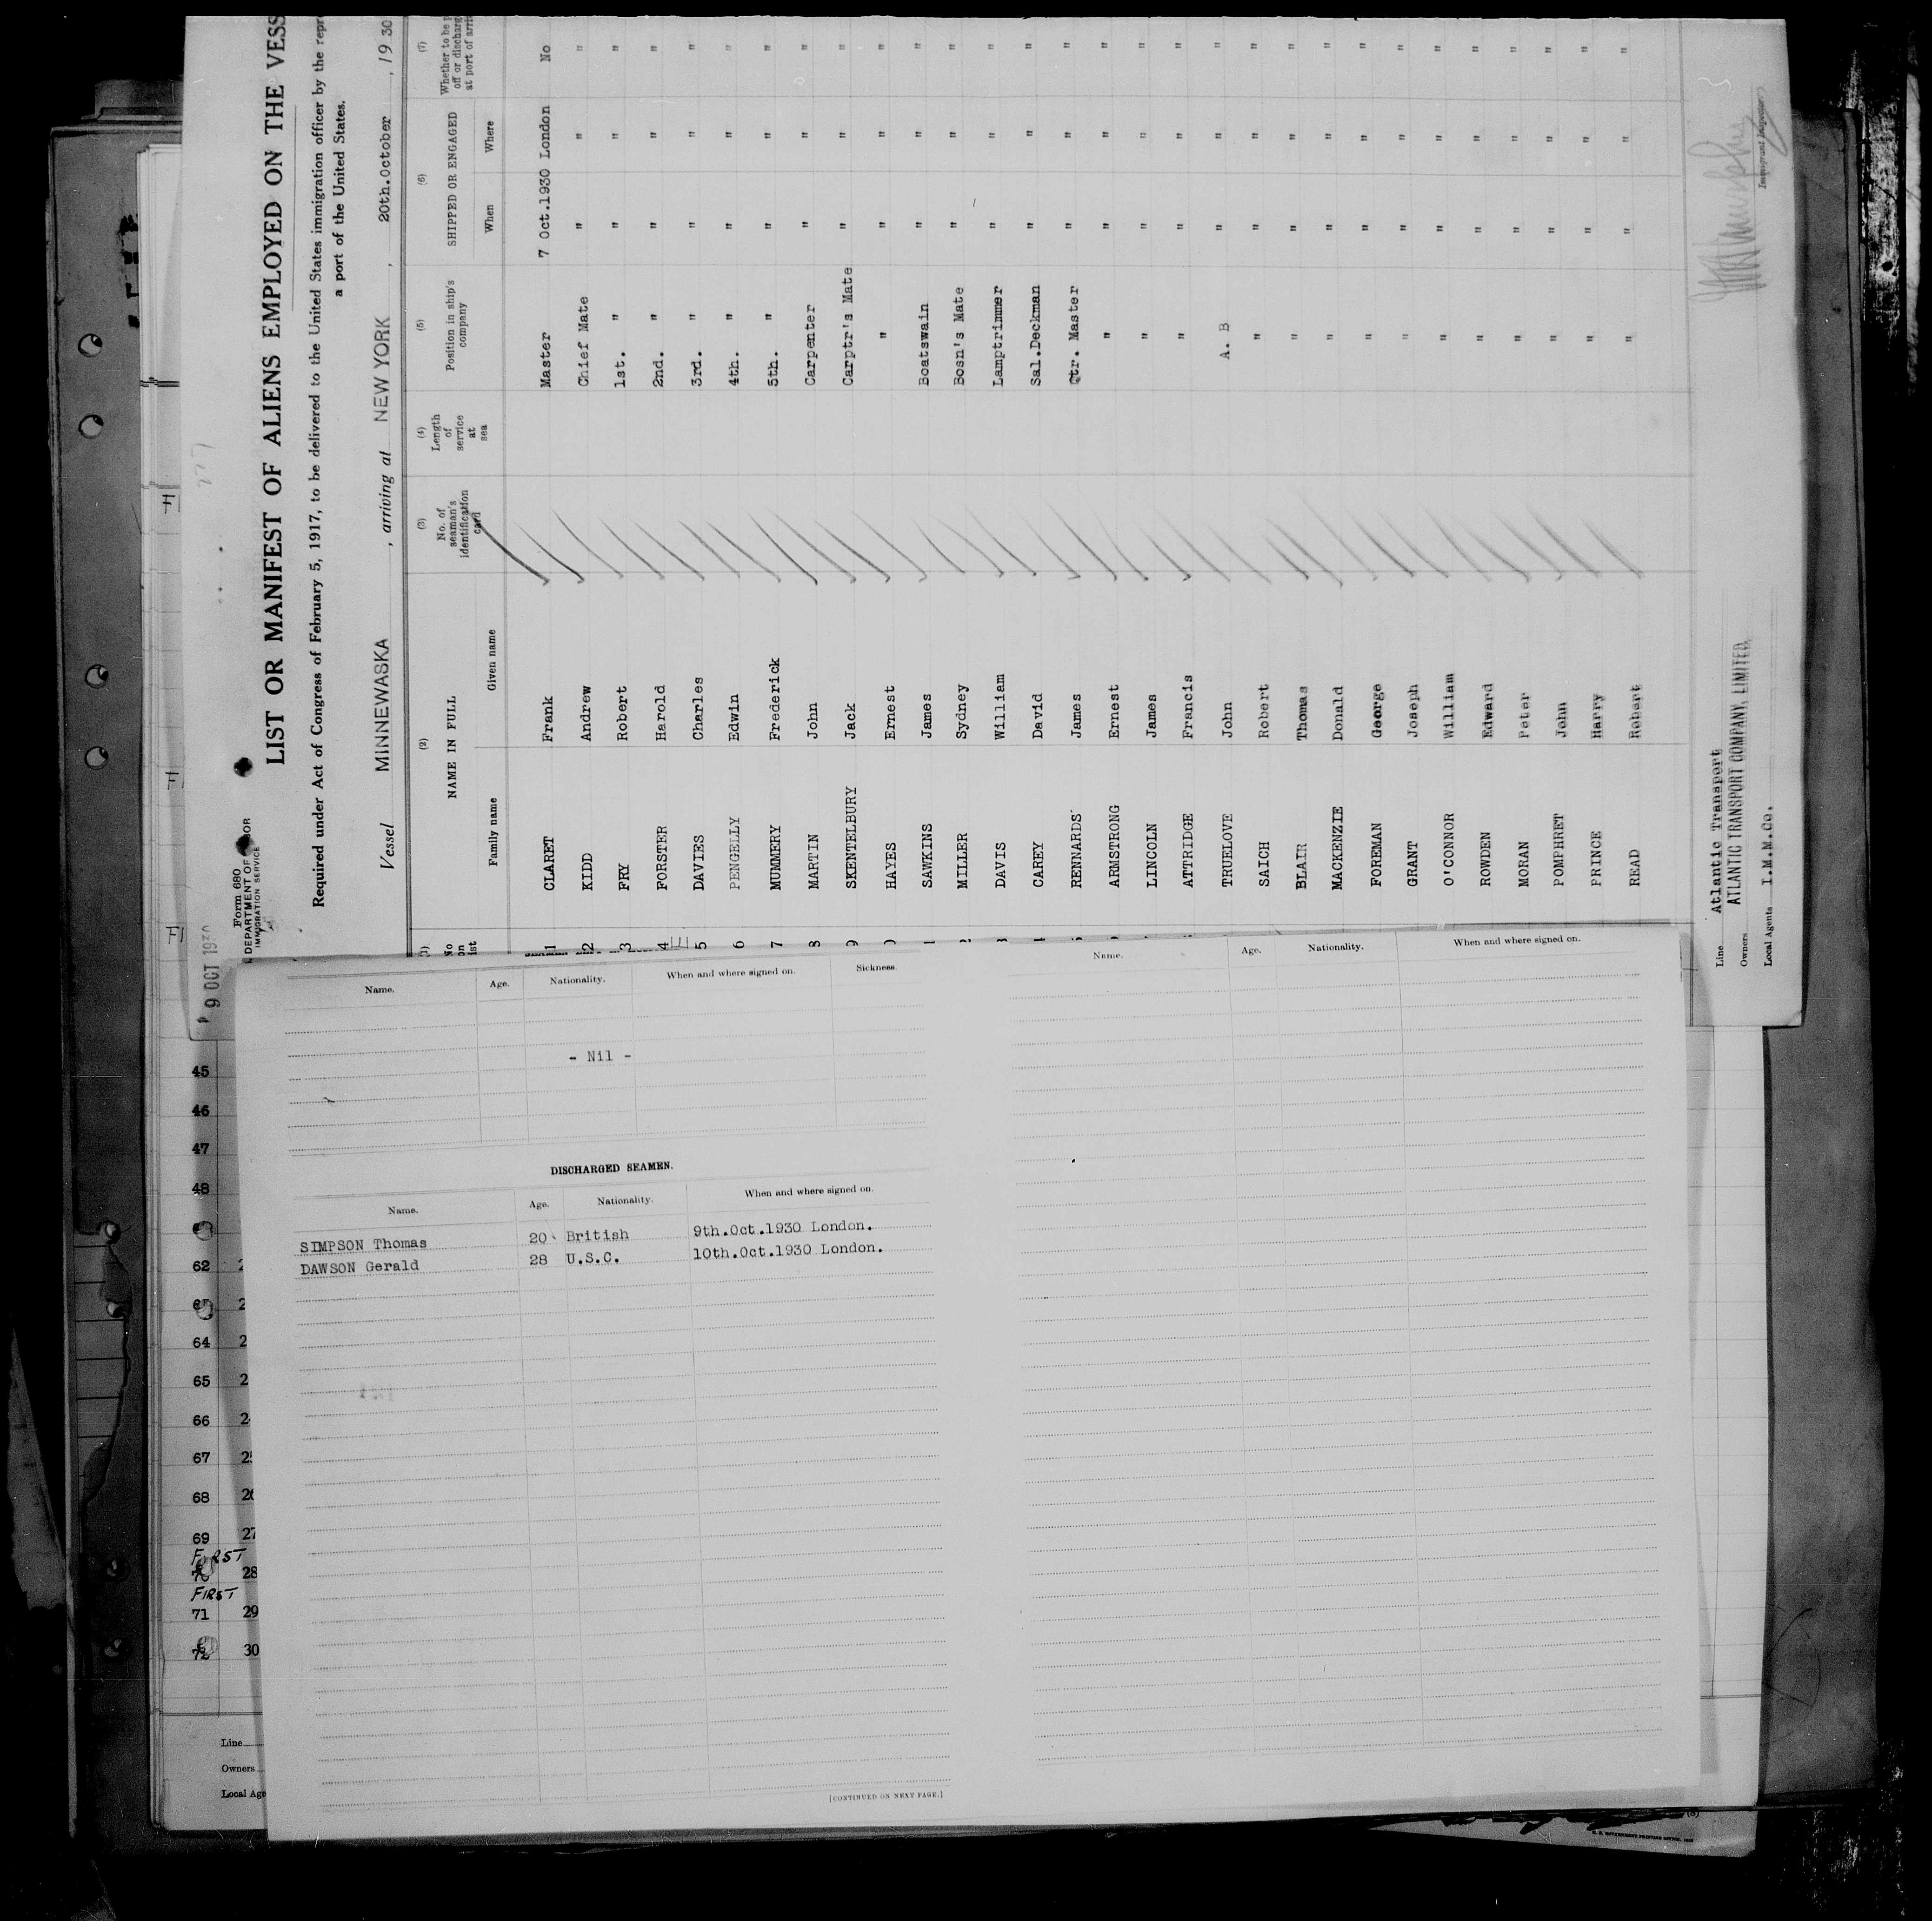 Form 680
DEPARTMENT OF
IMMIGRATION SERVICE
9 OCT 1930
LIST OR MANIFEST OF ALIENS EMPLOYED ON THE VESS
Required under Act of Congress of February 5, 1917, to be delivered to the United States immigration officer by the repr
a port of the United States.
Vessel MINNEWASKA , arriving at NEW YORK , 20th.October , 19 30
(2) (3) (4) (5) (6) (7)
NAME IN FULL No. of seaman's identification card Length of service at sea Position in ship's company SHIPPED OR ENGAGED Whether to be
off or discharg
at port of arri
Family name Given name When Where
1 CLARET Frank Master 7 Oct.1930 London No
2 KIDD Andrew Chief Mate " " "
3 FRY Robert 1st. " " " "
4 FORSTER Harold 2nd. " " " "
5 DAVIES Charles 3rd. " " " "
6 PENGELLY Edwin 4th. " " " "
7 MUMMERY Frederick 5th. " " " "
8 MARTIN John Carpenter " " "
9 SKENTELBURY Jack Carptr's Mate " " "
HAYES Ernest " " " "
SAWKINS James Boatswain " " "
MILLER Sydney Bosn's Mate " " "
DAVIS William Lamptrimmer " " "
CAREY David Sal.Deckman " " "
RENNARDS James Qtr. Master " " "
ARMSTRONG Ernest " " " "
LINCOLN James " " " "
ATTRIDGE Francis " " " "
TRUELOVE John A. B " " "
SAICH Robert " " " "
BLAIR Thomas " " " "
MACKENZIE Donald " " " "
FOREMAN George " " " "
GRANT Joseph " " " "
O'CONNOR William " " " "
ROWDEN Edward " " " "
MORAN Peter " " " "
POMPHRET John " " " "
PRINCE Harry " " " "
READ Robert " " " "
Line Atlantic Transport
Owners ATLANTIC TRANSPORT COMPANY, LIMITED.
Local Agents I.M.M.Co.
Immigrant Inspector
Name. Age. Nationality. When and where signed on. Sickness
- Nil -
DISCHARGED SEAMEN.
Name. Age. Nationality. When and where signed on.
SIMPSON Thomas 20 British 9th.Oct.1930 London.
DAWSON Gerald 28 U.S.C. 10th.Oct.1930 London.
[CONTINUED ON NEXT PAGE.]
Name. Age. Nationality. When and where signed on.
45
46
47
48
62
64
65
66
67
68
69 27
28
FIRST
71 29
72 30
Line
Owners
Local Age